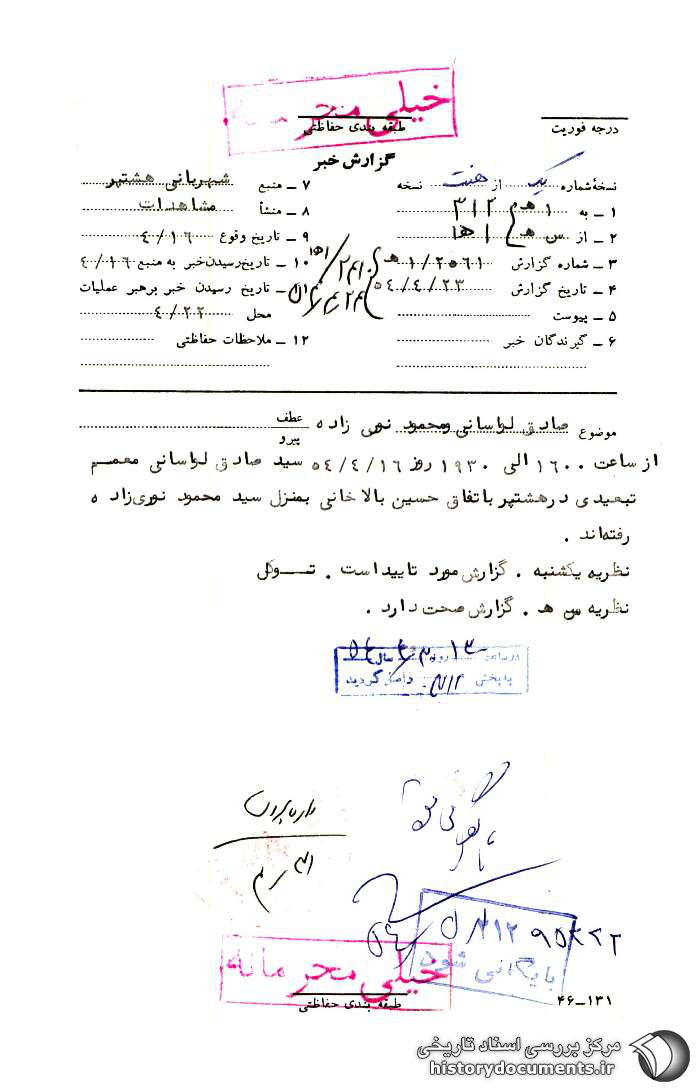 خیلی محرمانه
درجه فوریت
طبقه بندی حفاظتی
گزارش خبر
نسخهٔ شماره یک از هفت نسخه
۱ ـ به ۱ هـ ۳۱۲
۲ ـ از س هـ ۱ ها
۳ ـ شماره گزارش ۱/۲۵۶۱ هـ
۴ ـ تاریخ گزارش ۵۴/۴/۲۳
۵ ـ پیوست
۶ ـ گیرندگان خبر
۷ ـ منبع شهربانی هشتپر
۸ ـ منشأ مشاهدات
۹ ـ تاریخ وقوع ۴/۱۶
۱۰ ـ تاریخ رسیدن خبر به منبع ۴/۱۶
۱۱ ـ تاریخ رسیدن خبر برهبر عملیات
محل ۴/۲۲
۱۲ ـ ملاحظات حفاظتی
موضوع صادق لواسانی ومحمود نوری زاده عطف
پیرو
از ساعت ۱۶۰۰ الی ۱۹۳۰ روز ۵۴/۴/۱۶ سید صادق لواسانی معمم
تبعیدی درهشتپر باتفاق حسین بالاخانی بمنزل سید محمود نوری‌زاده
رفته‌اند .
نظریه یکشنبه . گزارش مورد تایید است . توکل
نظریه س هـ . گزارش صحت دارد .
در ساعت ۱۳ روز سال
ببخش ۳۱۲ واصل گردید
بایگانی شود
خیلی محرمانه
طبقه بندی حفاظتی
۴۶-۱۳۱
مرکز بررسی اسناد تاریخی
historydocuments.ir